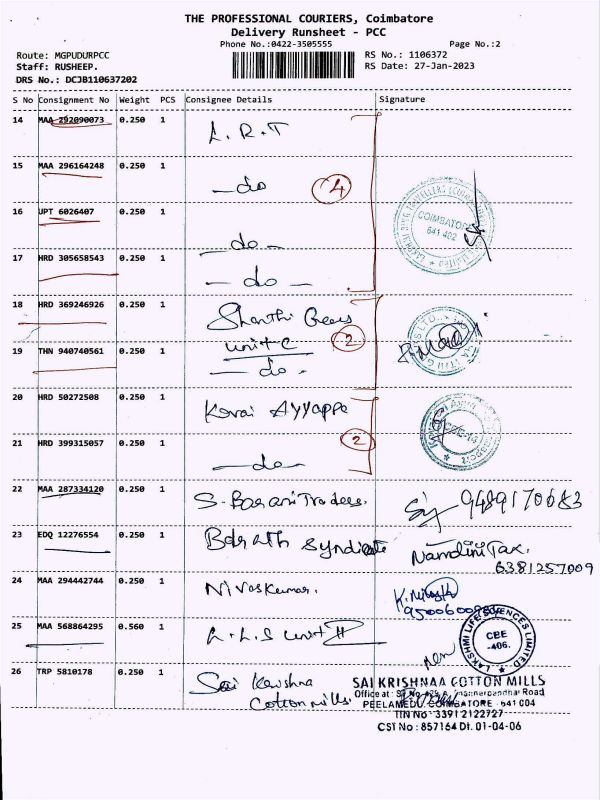 THE PROFESSIONAL COURIERS, Coimbatore
Delivery Runsheet - PCC
Phone No.:0422-3505555 Page No.:2
Route: MGPUDURPCC RS No.: 1106372
Staff: RUSHEEP. RS Date: 27-Jan-2023
DRS No.: DCJB110637202
S No Consignment No Weight PCS Consignee Details Signature
14 MAA 292090073 0.250 1 L.R.T
15 MAA 296164248 0.250 1 -do 4
16 UPT 6026407 0.250 1 -do- COIMBATORE 641 402
17 HRD 305658543 0.250 1 -do-
18 HRD 369246926 0.250 1 Shanthi Gears
unit C 2
19 THN 940740561 0.250 1 -do-
20 HRD 50272508 0.250 1 Kovai Ayyappa
2
21 HRD 399315057 0.250 1 -do-
22 MAA 287334120 0.250 1 S. Barani Traders. 9489170683
23 EDQ 12276554 0.250 1 Barath Syndicate Nandini Tax.
6381257009
24 MAA 294442744 0.250 1 Nivas Kumar.
25 MAA 568864295 0.560 1 L.L.S unit II LAKSHMI LIFE SCIENCES LIMITED CBE -406.
26 TRP 5810178 0.250 1 Sai Krishna
Cotton mills.
SAI KRISHNAA COTTON MILLS
Office at :
PEELAMEDU, COIMBATORE - 641 004
TIN No 33912122727
CST No : 857164 Dt. 01-04-06